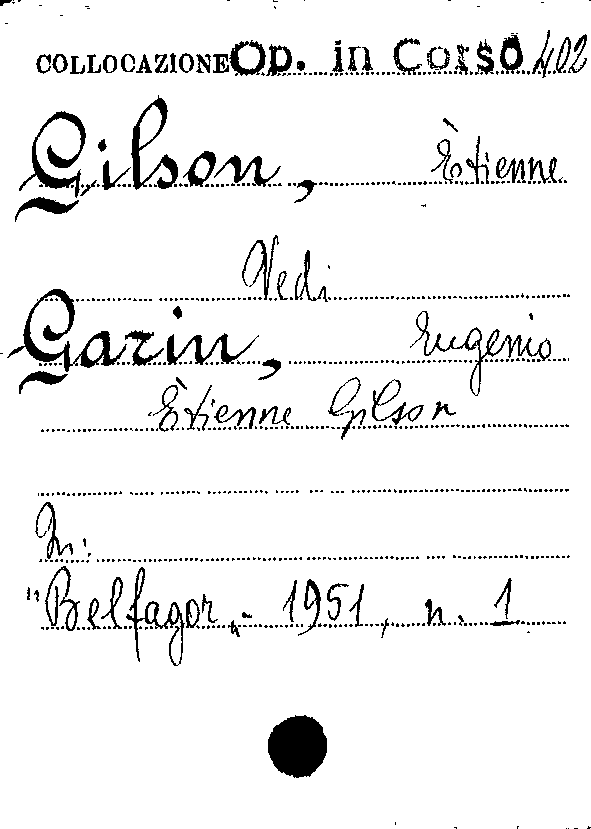 COLLOCAZIONE Op. in Corso 402
Gilson, Ètienne
Vedi
Garin, Eugenio
Ètienne Gilson
In:
"Belfagor„- 1951, n. 1